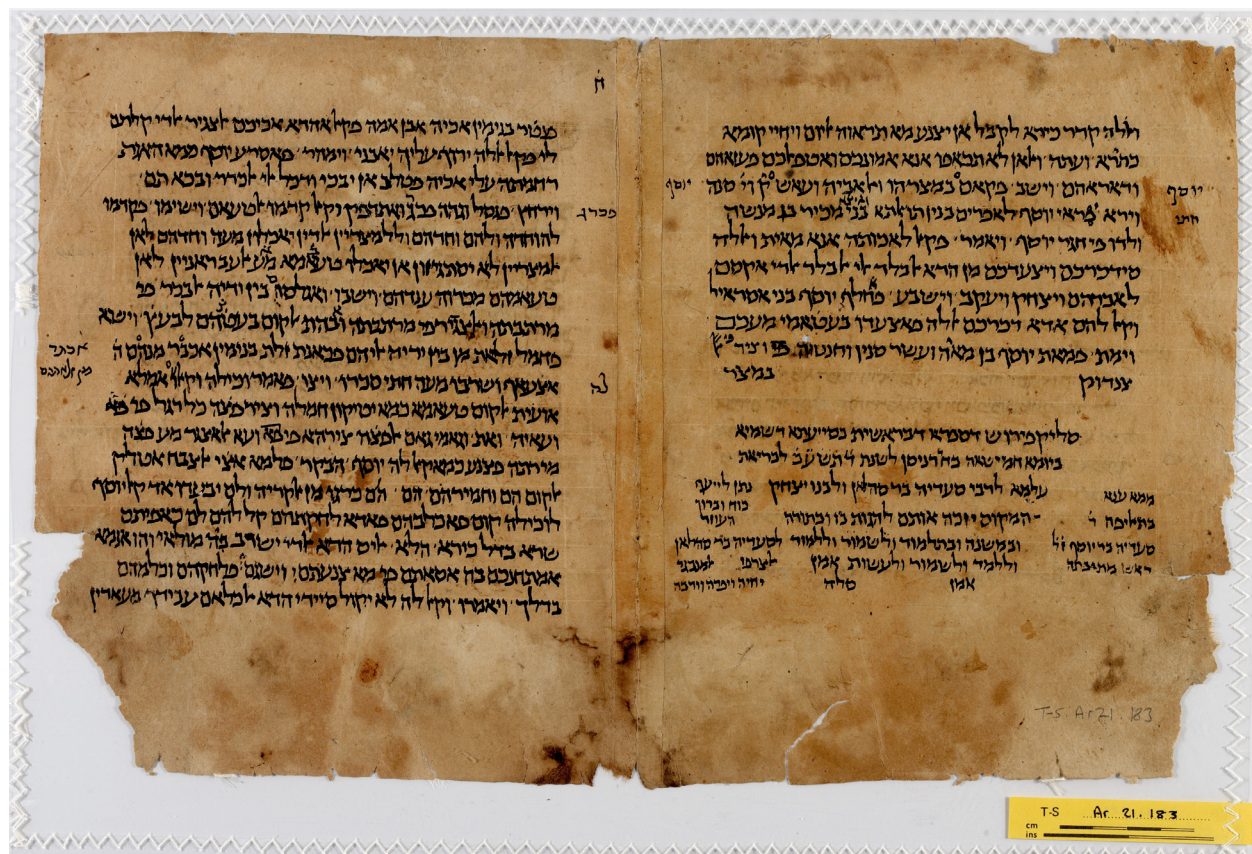 ואללה קדר בירא לקבל אן יצנע מא תראוה ליום ויחיי קומא
כתירא ועתה ולאן לא תכאפו אנא אמונכם ואטפלכם פעזאהם
ודאראהם וישב פקאם במצר הו ואל אביה ועאש ק וי סנה
יוסף
יוסף
חתי
וירא פראי יוסף לאפרים בנין תואלתא בני מכיר בן מנשה
ולדו פי חגר יוסף ויאמר פקאל לאכותה אנא מאית ואללה
סידכרכם ויצעדכם מן הדא אלבלד אלי אלבלד אלדי אקסם
לאברהים ויצחק ויעקב וישבע פחלף יוסף בני אסראיל
וקאל להם אדא דכרכם אללה פאצעדו בעטאמי מעכם
וימת פמאת יוסף בן מאה ועשר סנין וחנטוה וציר פי
צנדוק במצר
סליק פירוש דספרא דבראשית בסייעתא דשמיא
ביומא חמישאה בח דניסן לשנת דתשעב לבריאת
עלמא לרבי סעדיה בר סהלאן ולבני יצחק
המקום יזכה אותם להגות בו ובתורה
ובמשנה ובתלמוד ולשמור וללמוד
וללמד ולשמור ולעשות אמן
אמן סלה
נתן לייעף
כוח וברוך
העוזר
לסעדיה בר סהלאן
יחיה ויפרה וירבה
ממא ענא
סעדיה בר יוסף זל
ראש מתיבתה
T-S. Ar 21. 183
ח
פנטר בנימין אכיה אבן אמה פקאל אהדא אכיכם אלצגיר אלדי קלתם
לי פקאל אללה ירוף עליך יאבני וימהר פאסרע יוסף ממא האגת
רחמתה עלי אכיה פטלב אן יבכי ודכל אלי אלכדר ובכא תם
וירחץ פגסל וגהה פכרג ואתהפק וקאל קדמו אלטעאם וישימו פקדמו
פכרג
לה וחדה ולהם וחדהם וללמצריין אלדין יאכלון מעה וחדהם לאן
אלמצריין לא יסתגיזון אן יאכלו טעאמא מע אלעבראניין לאן
טעאמהם מכרוה ענדהם וישבו ואגלסו בין ידיה אלבכר פי
מרתבתה ואלצגיר פי מרתבתה ובהת אלקום בעצהם לבעץ וישא
פחמל זלאת מן בין ידיה אליהם פכאנת זלת בנימין אכבר מנהם ה
אכתר
אצעאף ושרבו מעה חתי סכרו ויצו פאמר וכילה וקאל אמלא
אועית אלקום טעאמא כמא יטיקון חמלה וציר פצה כל רגל פי
ועאיה ואת וגאמי גאם אלפצה צירהא פי ועא אלאצגר מע פצה
מירתה פצנע כמא קאל לה יוסף הבקר פלמא אצי אלצבח אטלק
אלקום הם וחמירהם הם הם כרגו מן אלקריה ולם יבעדו אד קאל יוסף
לוכילה קום פאכלבהם פאדא לחקתהם קל להם לם כאפיתם
שרא בדל כירא הלא אליס הדא אלדי ישרב בה מולאי והו אנמא
אמתחנכם בה אסאתם פי מא צנעתם וישגם פלחקהם וכלמהם
בדלך ויאמרו וקאל לה לא יקול סיידי הדא אלכלאם עבידך מעאדין
T-S Ar. 21. 183
cm
ins